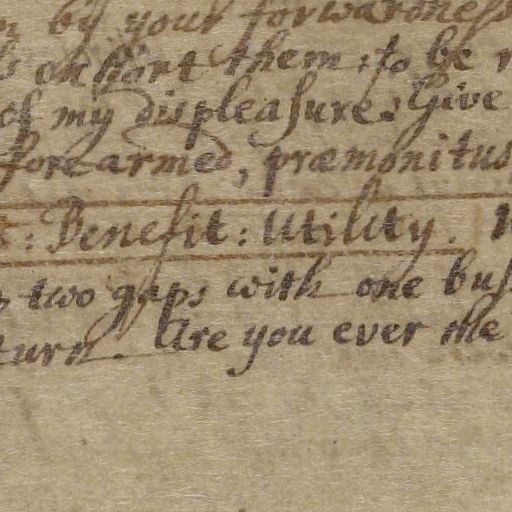 by your forwardness
exhort them, to be
of my displeasure. Give
forearmed, præmonitus
: Benefit: Utility.
two gaps with one bus
turn. Are you ever the